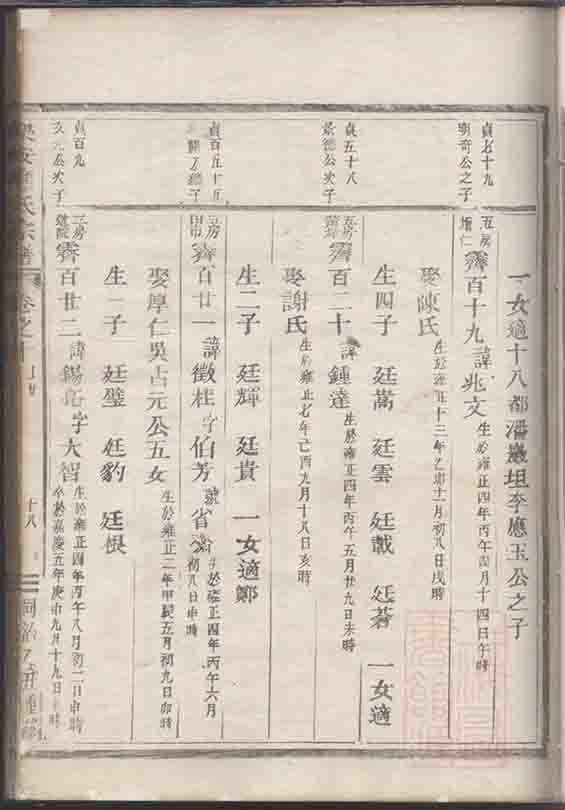 一女適十八都潘巖坦李應玉公之子
貞七十九
明奇公之子
五房
壻仁
霽百十九諱兆文
生於雍正四年丙午四月十四日午時
娶陳氏
生於雍正十三年乙卯十一月初八日戌時
生四子 廷嵩 廷雲 廷戴 廷蒼 一女適
貞五十八
景德公次子
五房
霽百二十諱鍾達
生於雍正四年丙午五月廿九日未時
娶謝氏
生於雍正七年己酉九月十八日亥時
生二子 廷輝 廷貴 一女適鄭
貞百五十五
房
霽百廿一諱徵柱字伯芳號省
生於雍正四年丙午六月
初八日申時
娶厚仁吳占元公五女
生於雍正二年甲辰五月初九日卯時
生一子 廷璧 廷豹 廷根
貞百九
公次子
三房
霽百廿二諱錫 字大智
生於雍正四年丙午八月初二日申時
卒於嘉慶五年庚申九月十九日 時
氏宗譜
卷之十
十八
同治